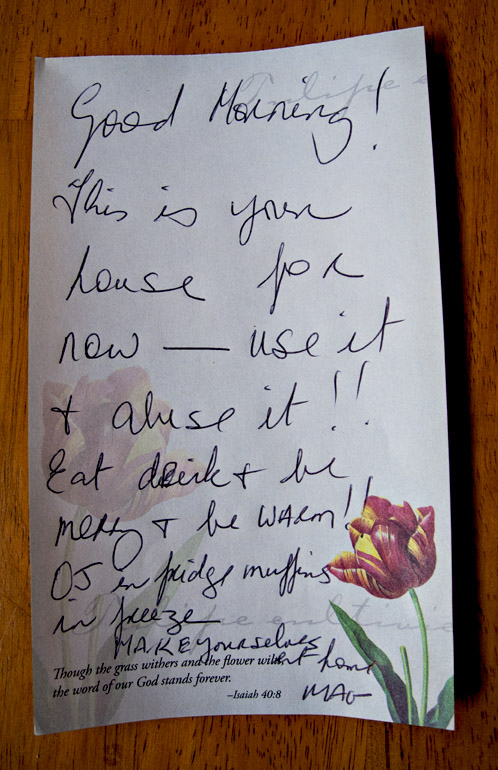 Good Morning!
This is your
house for
now — use it
& abuse it!!
Eat drink & be
merry & be WARM!!
OJ in fridge muffins
in freeze
MAKE yourselves
at home
Though the grass withers and the flower wilts,
the word of our God stands forever.
–Isaiah 40:8
MAG